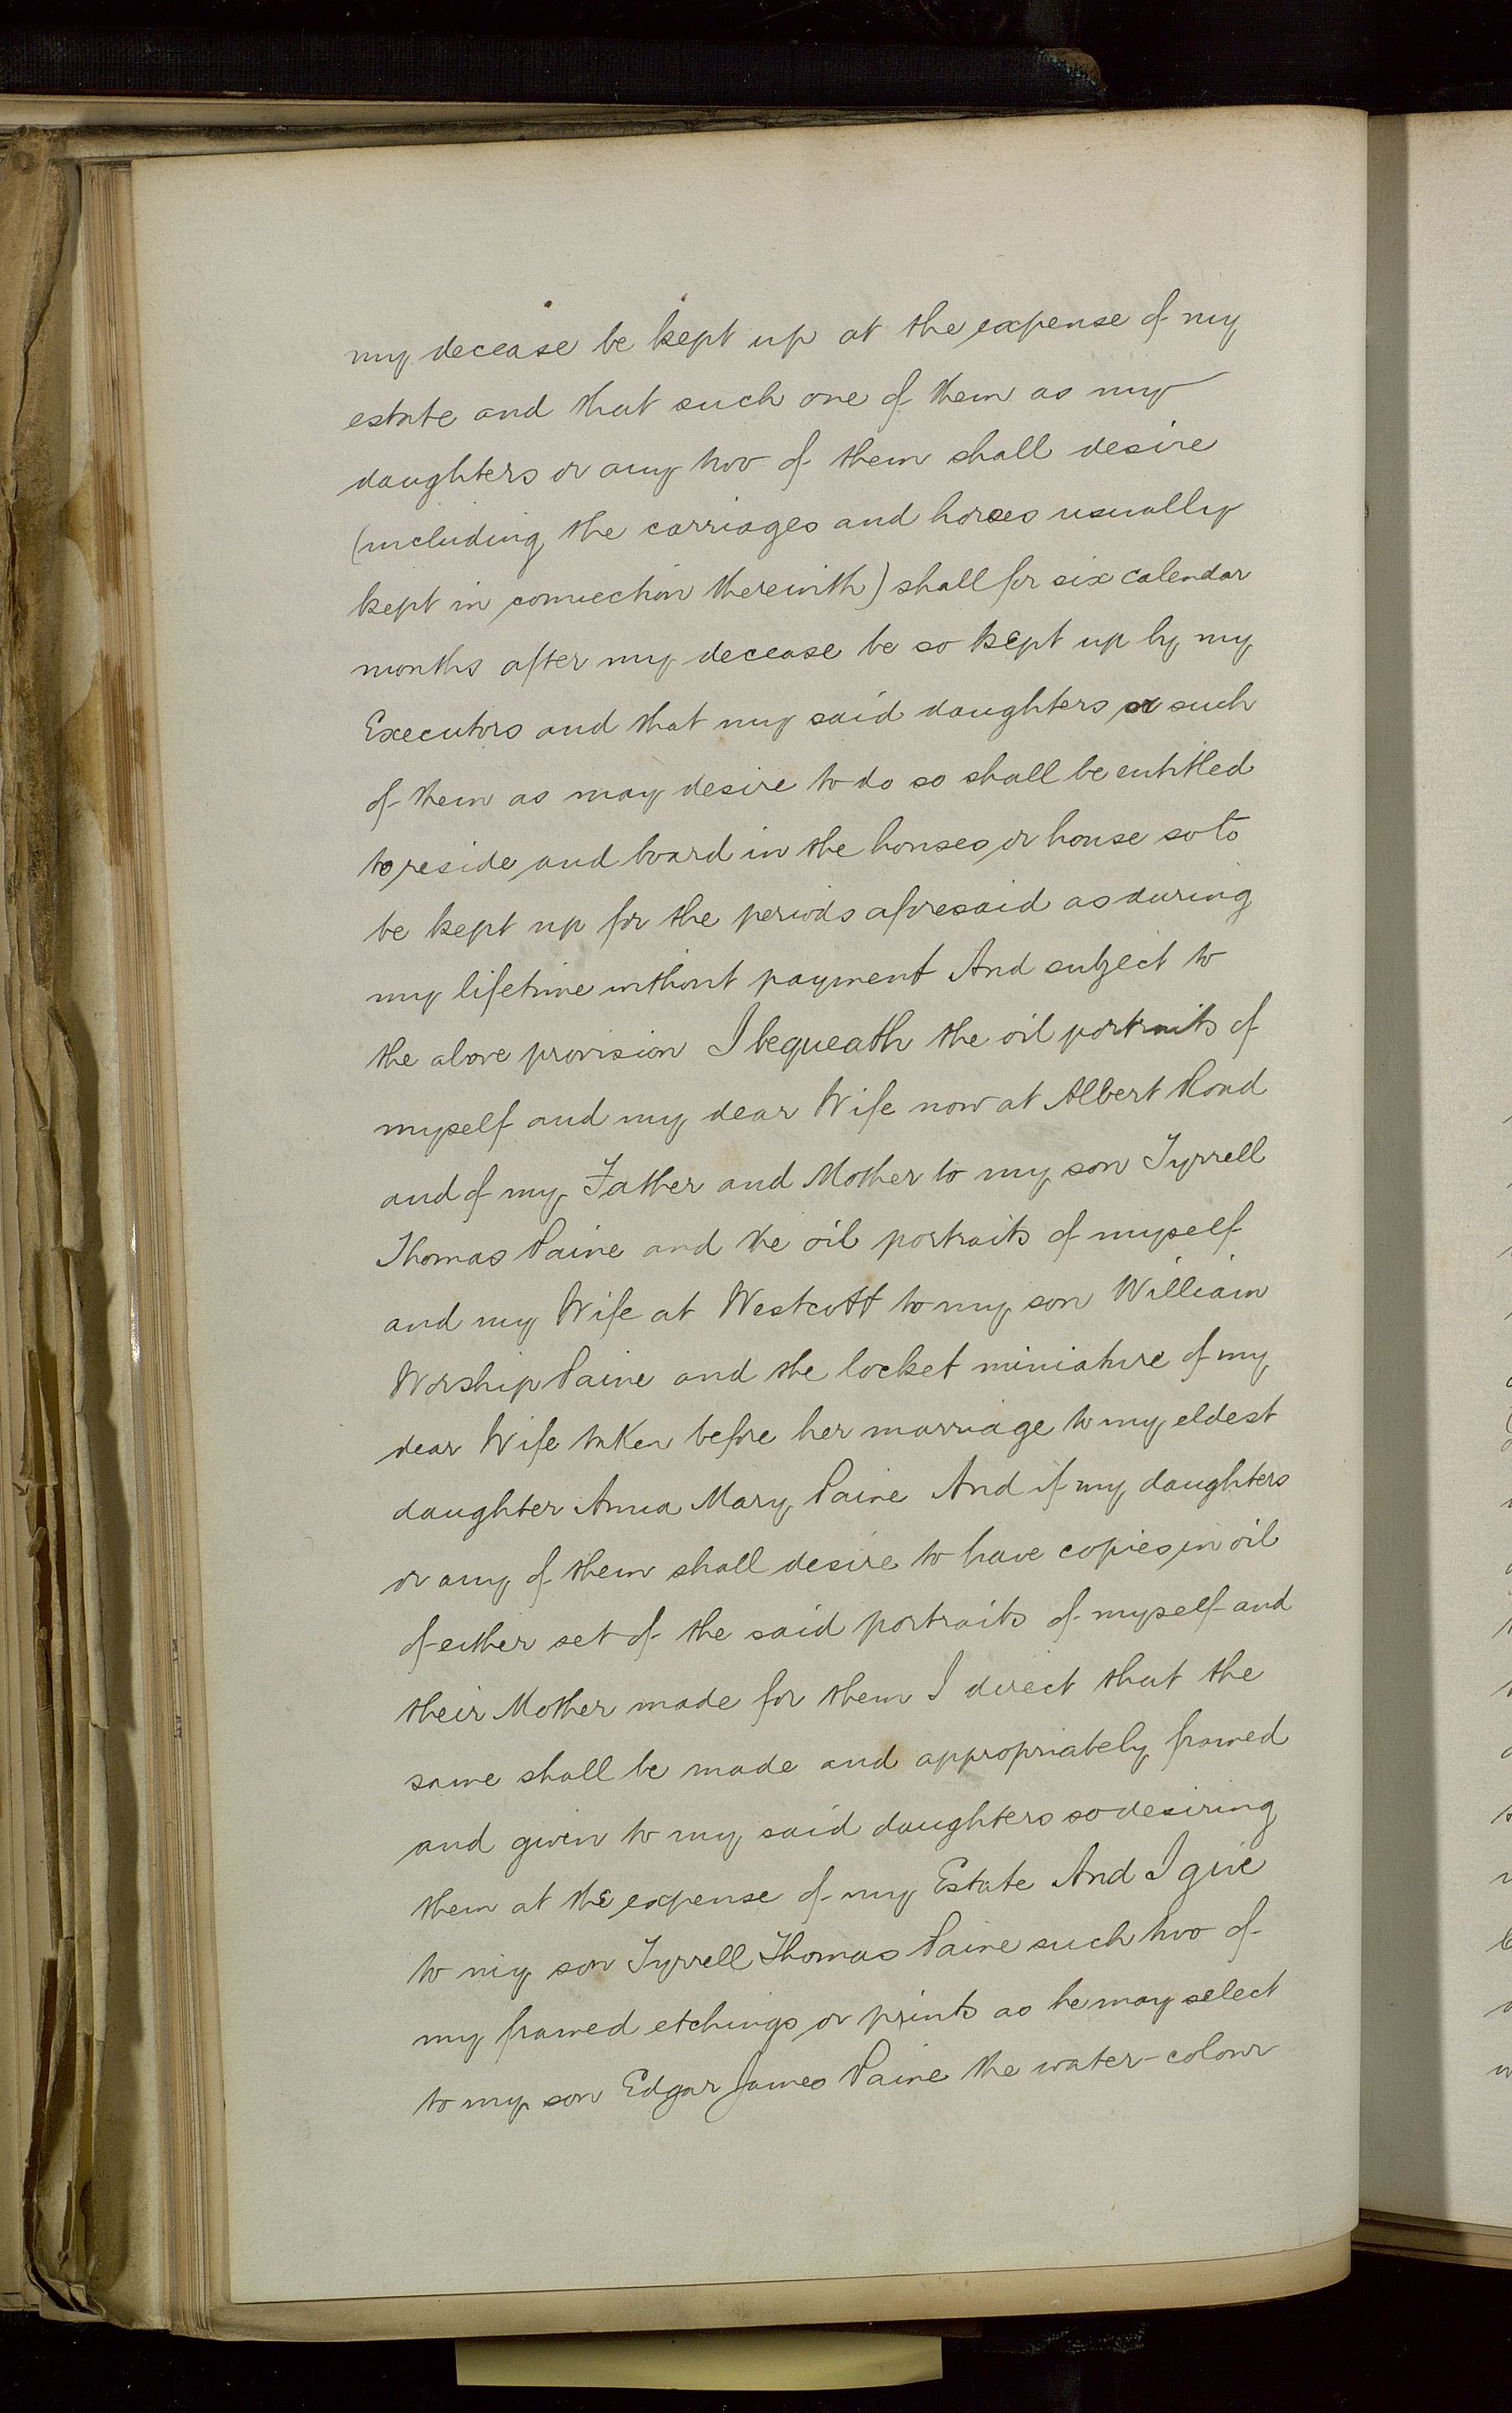 my decease be kept up at the expense of my
estate and that such one of them as my
daughters or any two of them shall desire
(including the carriages and horses usually
kept in connection therewith) shall for six calendar
months after my decease be so kept up by my
Executors and that my said daughters or such
of them as may desire to do so shall be entitled
to reside and board in the houses or house so to
be kept up for the periods aforesaid as during
my lifetime without payment And subject to
the above provision I bequeath the oil portraits of
myself and my dear Wife now at Albert Road
and of my Father and Mother to my son Tyrrell
Thomas Paine and the oil portraits of myself
and my Wife at Westcott to my son William
Worship Paine and the locket miniature of my
dear Wife taken before her marriage to my eldest
daughter Anna Mary Paine And if my daughters
or any of them shall desire to have copies in oil
of either set of the said portraits of myself and
their Mother made for them I direct that the
same shall be made and appropriately framed
and given to my said daughters so desiring
them at the expense of my Estate And I give
to my son Tyrrell Thomas Paine such two of
my framed etchings or prints as he may select
to my son Edgar James Paine the water-colour